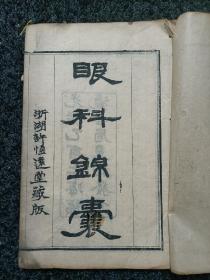 眼科錦囊
浙湖許恒遠堂藏版